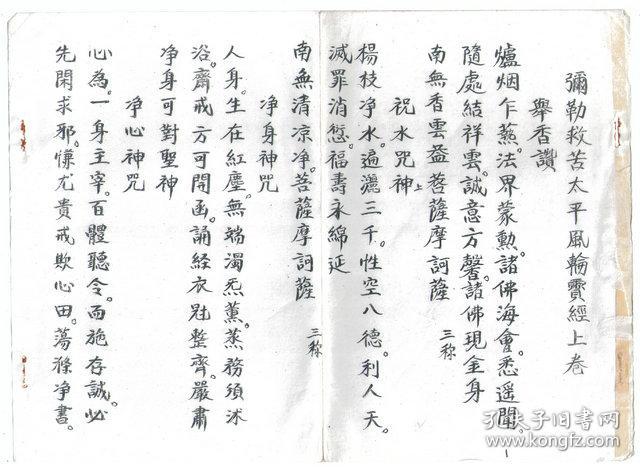 彌勒救苦太平風輪寶經上卷
舉香讚
爐烟乍爇。法界蒙勳。諸佛海會。悉遥聞。
隨處結祥雲。誠意方馨。諸佛現金身
南無香雲盖菩薩摩訶薩 三称
祝水咒神上
楊枝净水。遍灑三千。性空八德。利人天。
滅罪消愆。福壽永綿延
南無清凉净。菩薩摩訶薩 三称
净身神咒
人身。生在紅塵。無端濁炁薰蒸。務須沐
浴。齋戒方可開函。誦経衣冠整齊。嚴肅
净身可對聖神
净心神咒
心為。一身主宰。百體聽令。而施存誠。必
先閑求邪。慊尤貴戒欺心田。蕩滌净書。
孔夫子旧书网
www.kongfz.com